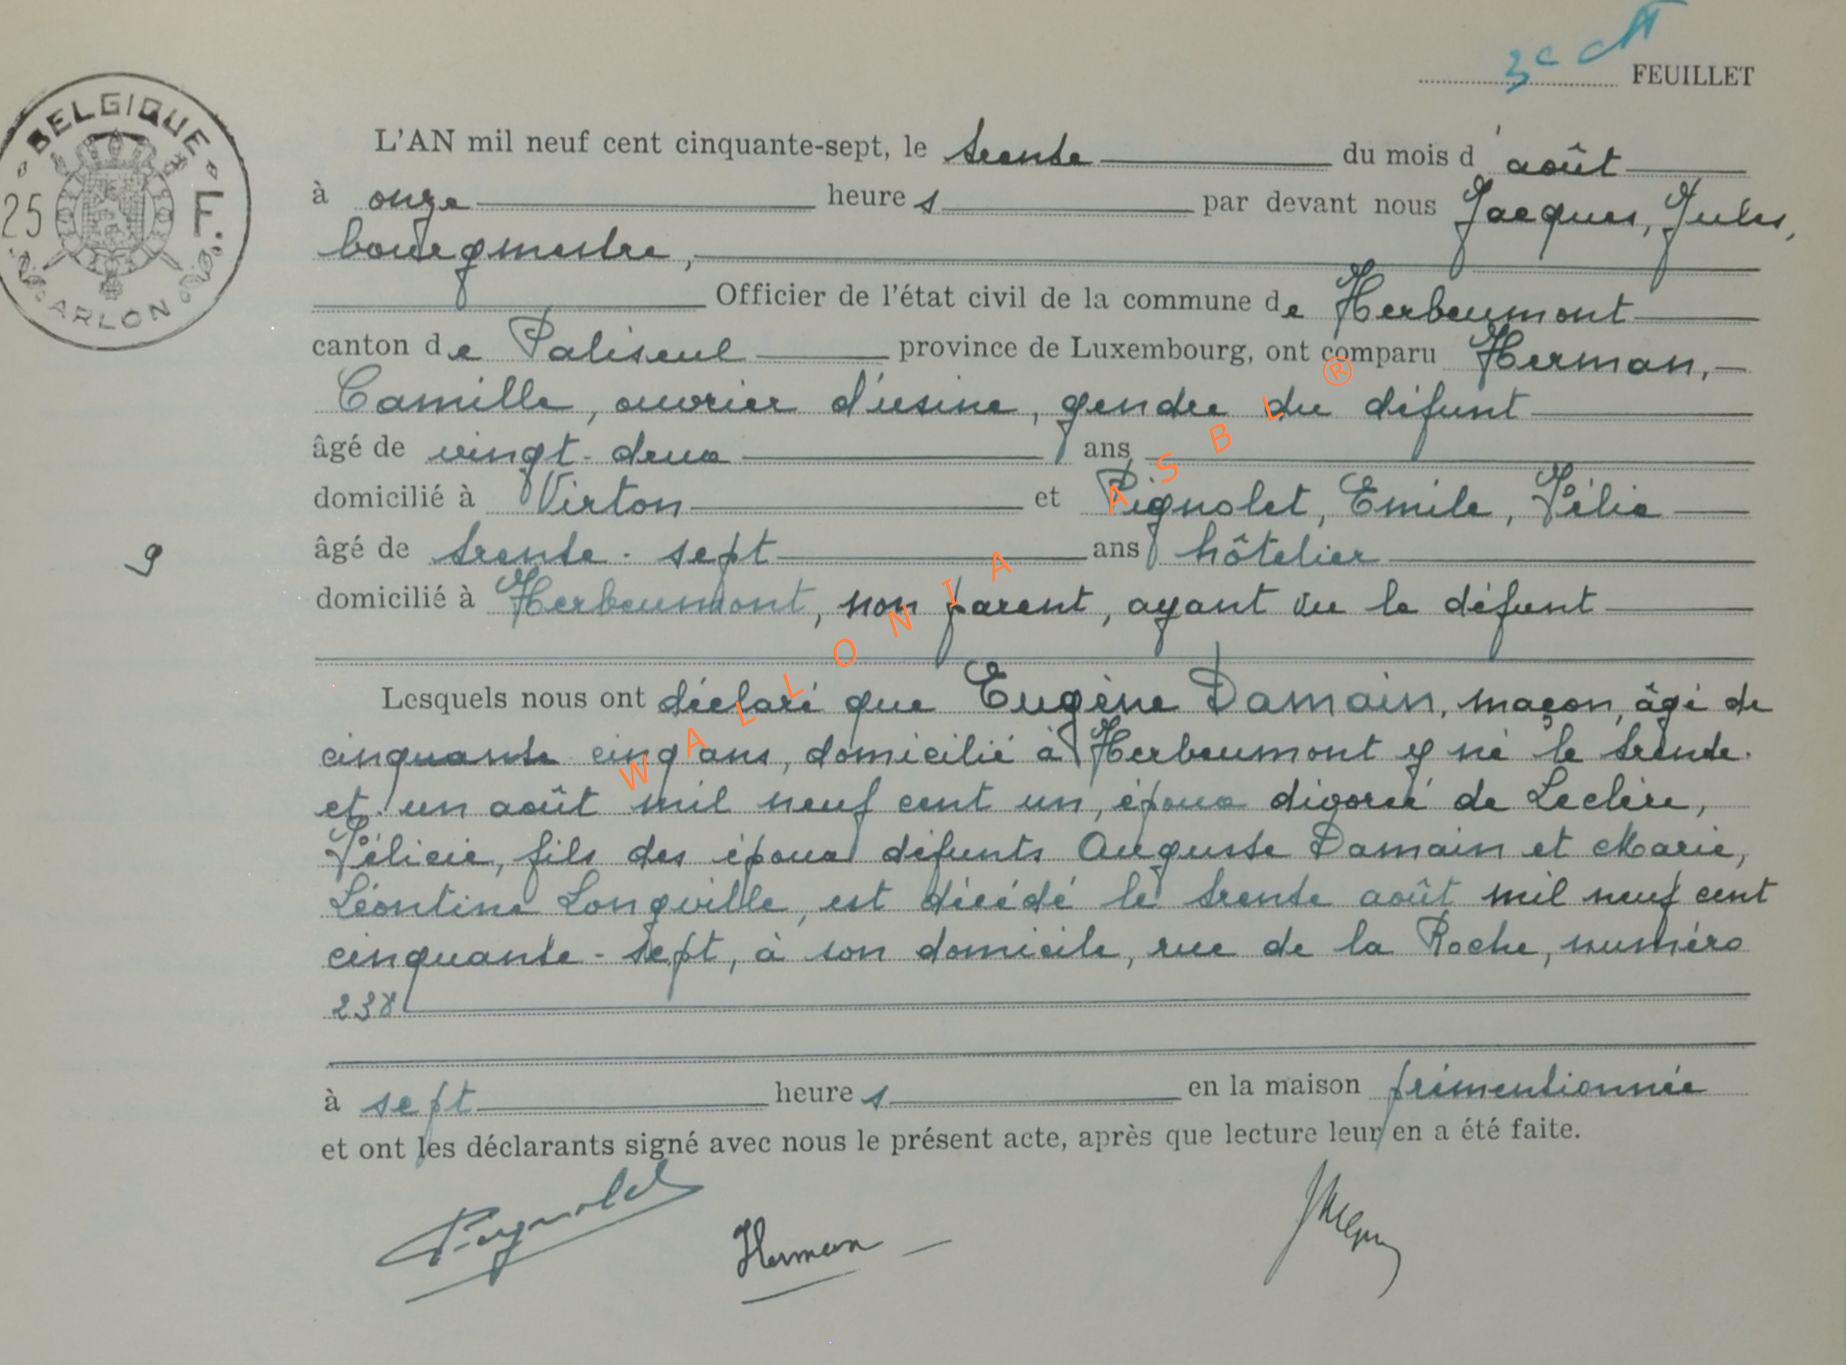 3e
FEUILLET
BELGIQUE
25 F.
ARLON
L'AN mil neuf cent cinquante-sept, le trente du mois d'août
à onze heures par devant nous Jacques, Jules,
bourgmestre,
Officier de l'état civil de la commune de Herbeumont
canton de Paliseul province de Luxembourg, ont comparu Herman,
Camille, ouvrier d'usine, gendre du défunt
âgé de vingt-deux ans
domicilié à Virton et Pignolet, Emile, Félix
âgé de trente-sept ans hôtelier
domicilié à Herbeumont, non parent, ayant vu le défunt
Lesquels nous ont déclaré que Eugène Damain, maçon, âgé de
cinquante cinq ans, domicilié à Herbeumont y né le trente-
et un août mil neuf cent un, époux divorcé de Leclère,
Félicie, fils des époux défunts Auguste Damain et Marie,
Léontine Longville, est décédé le trente août mil neuf cent
cinquante-sept, à son domicile, rue de la Roche, numéro
238
à sept heures en la maison prémentionnée
et ont les déclarants signé avec nous le présent acte, après que lecture leur en a été faite.
Pignolet Herman Jacques
9
WALLONIA ASBL ®